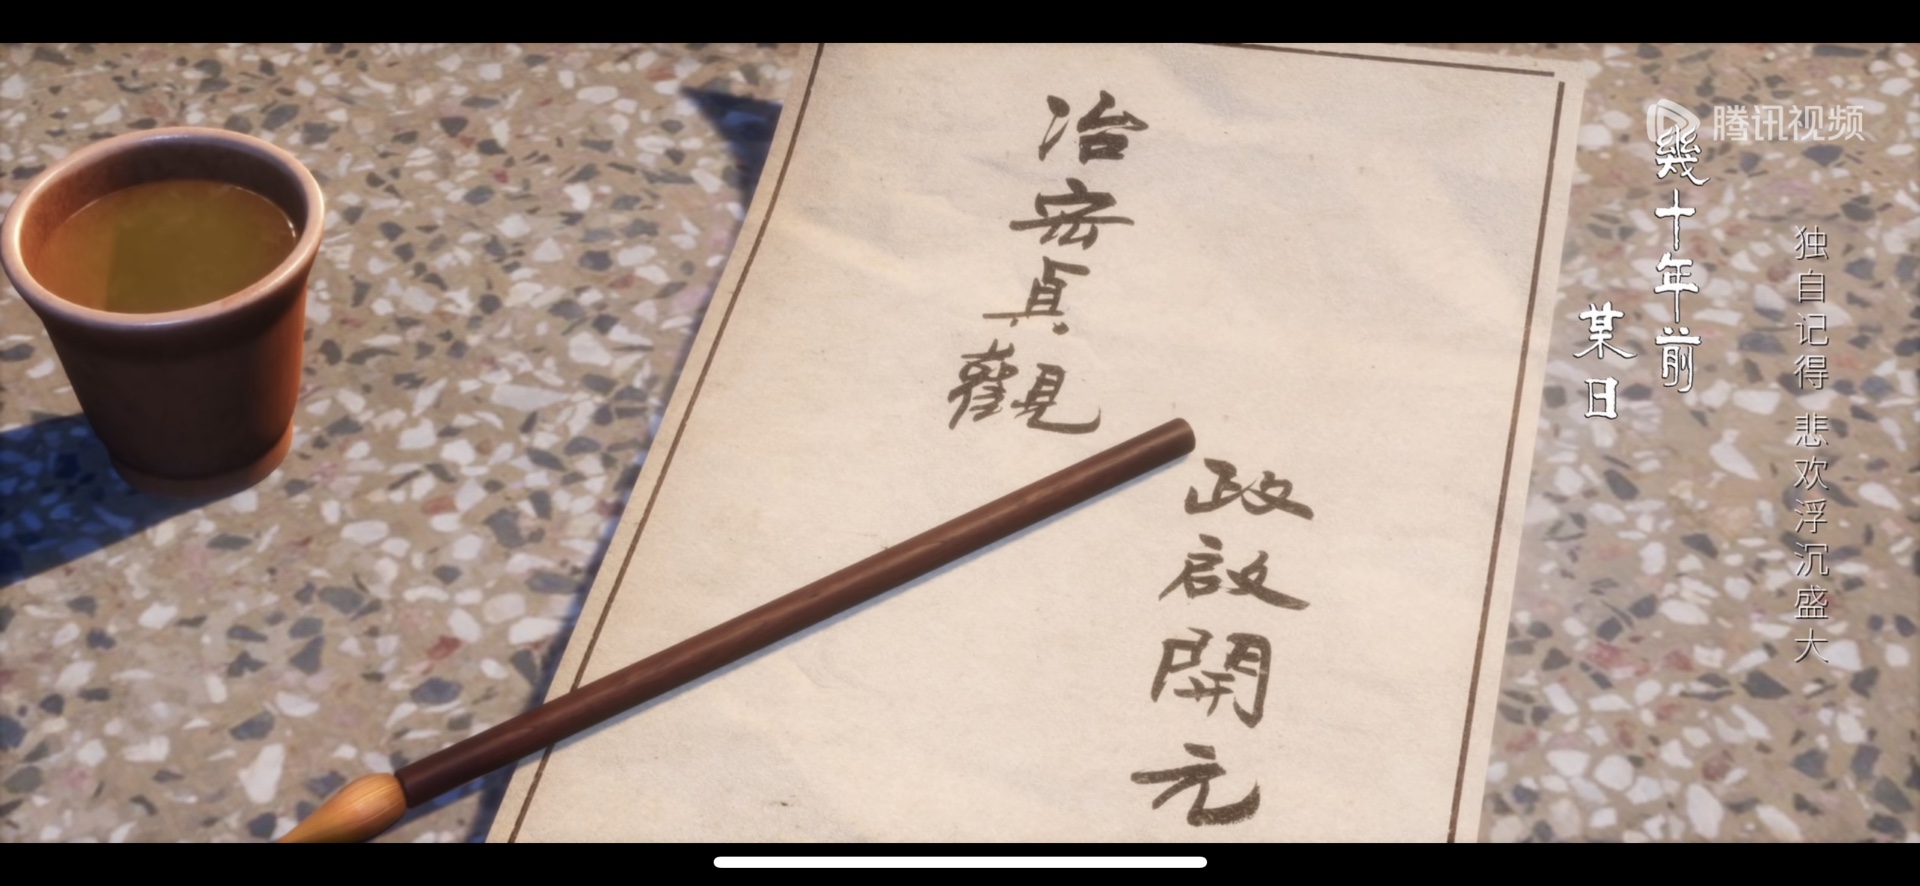 腾讯视频
独自记得 悲欢浮沉盛大
幾十年前
某日
政啟開元
治宏貞觀